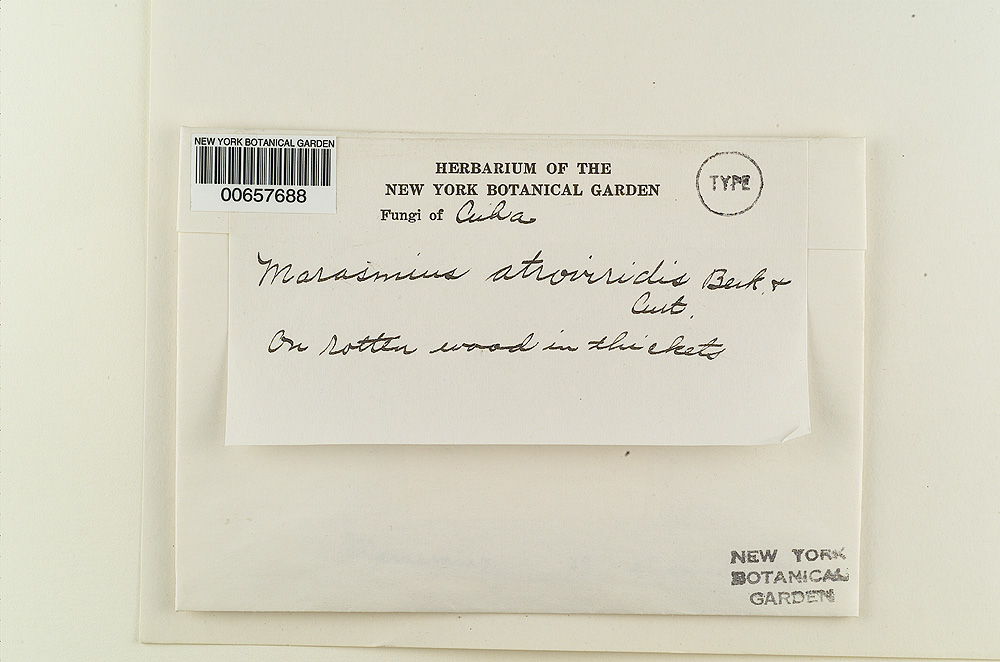 NEW YORK BOTANICAL GARDEN
00657688
HERBARIUM OF THE
NEW YORK BOTANICAL GARDEN
Fungi of Cuba
TYPE
Marasmius atroviridis Berk. &
Curt.
On rotten wood in thickets
NEW YORK
BOTANICAL
GARDEN